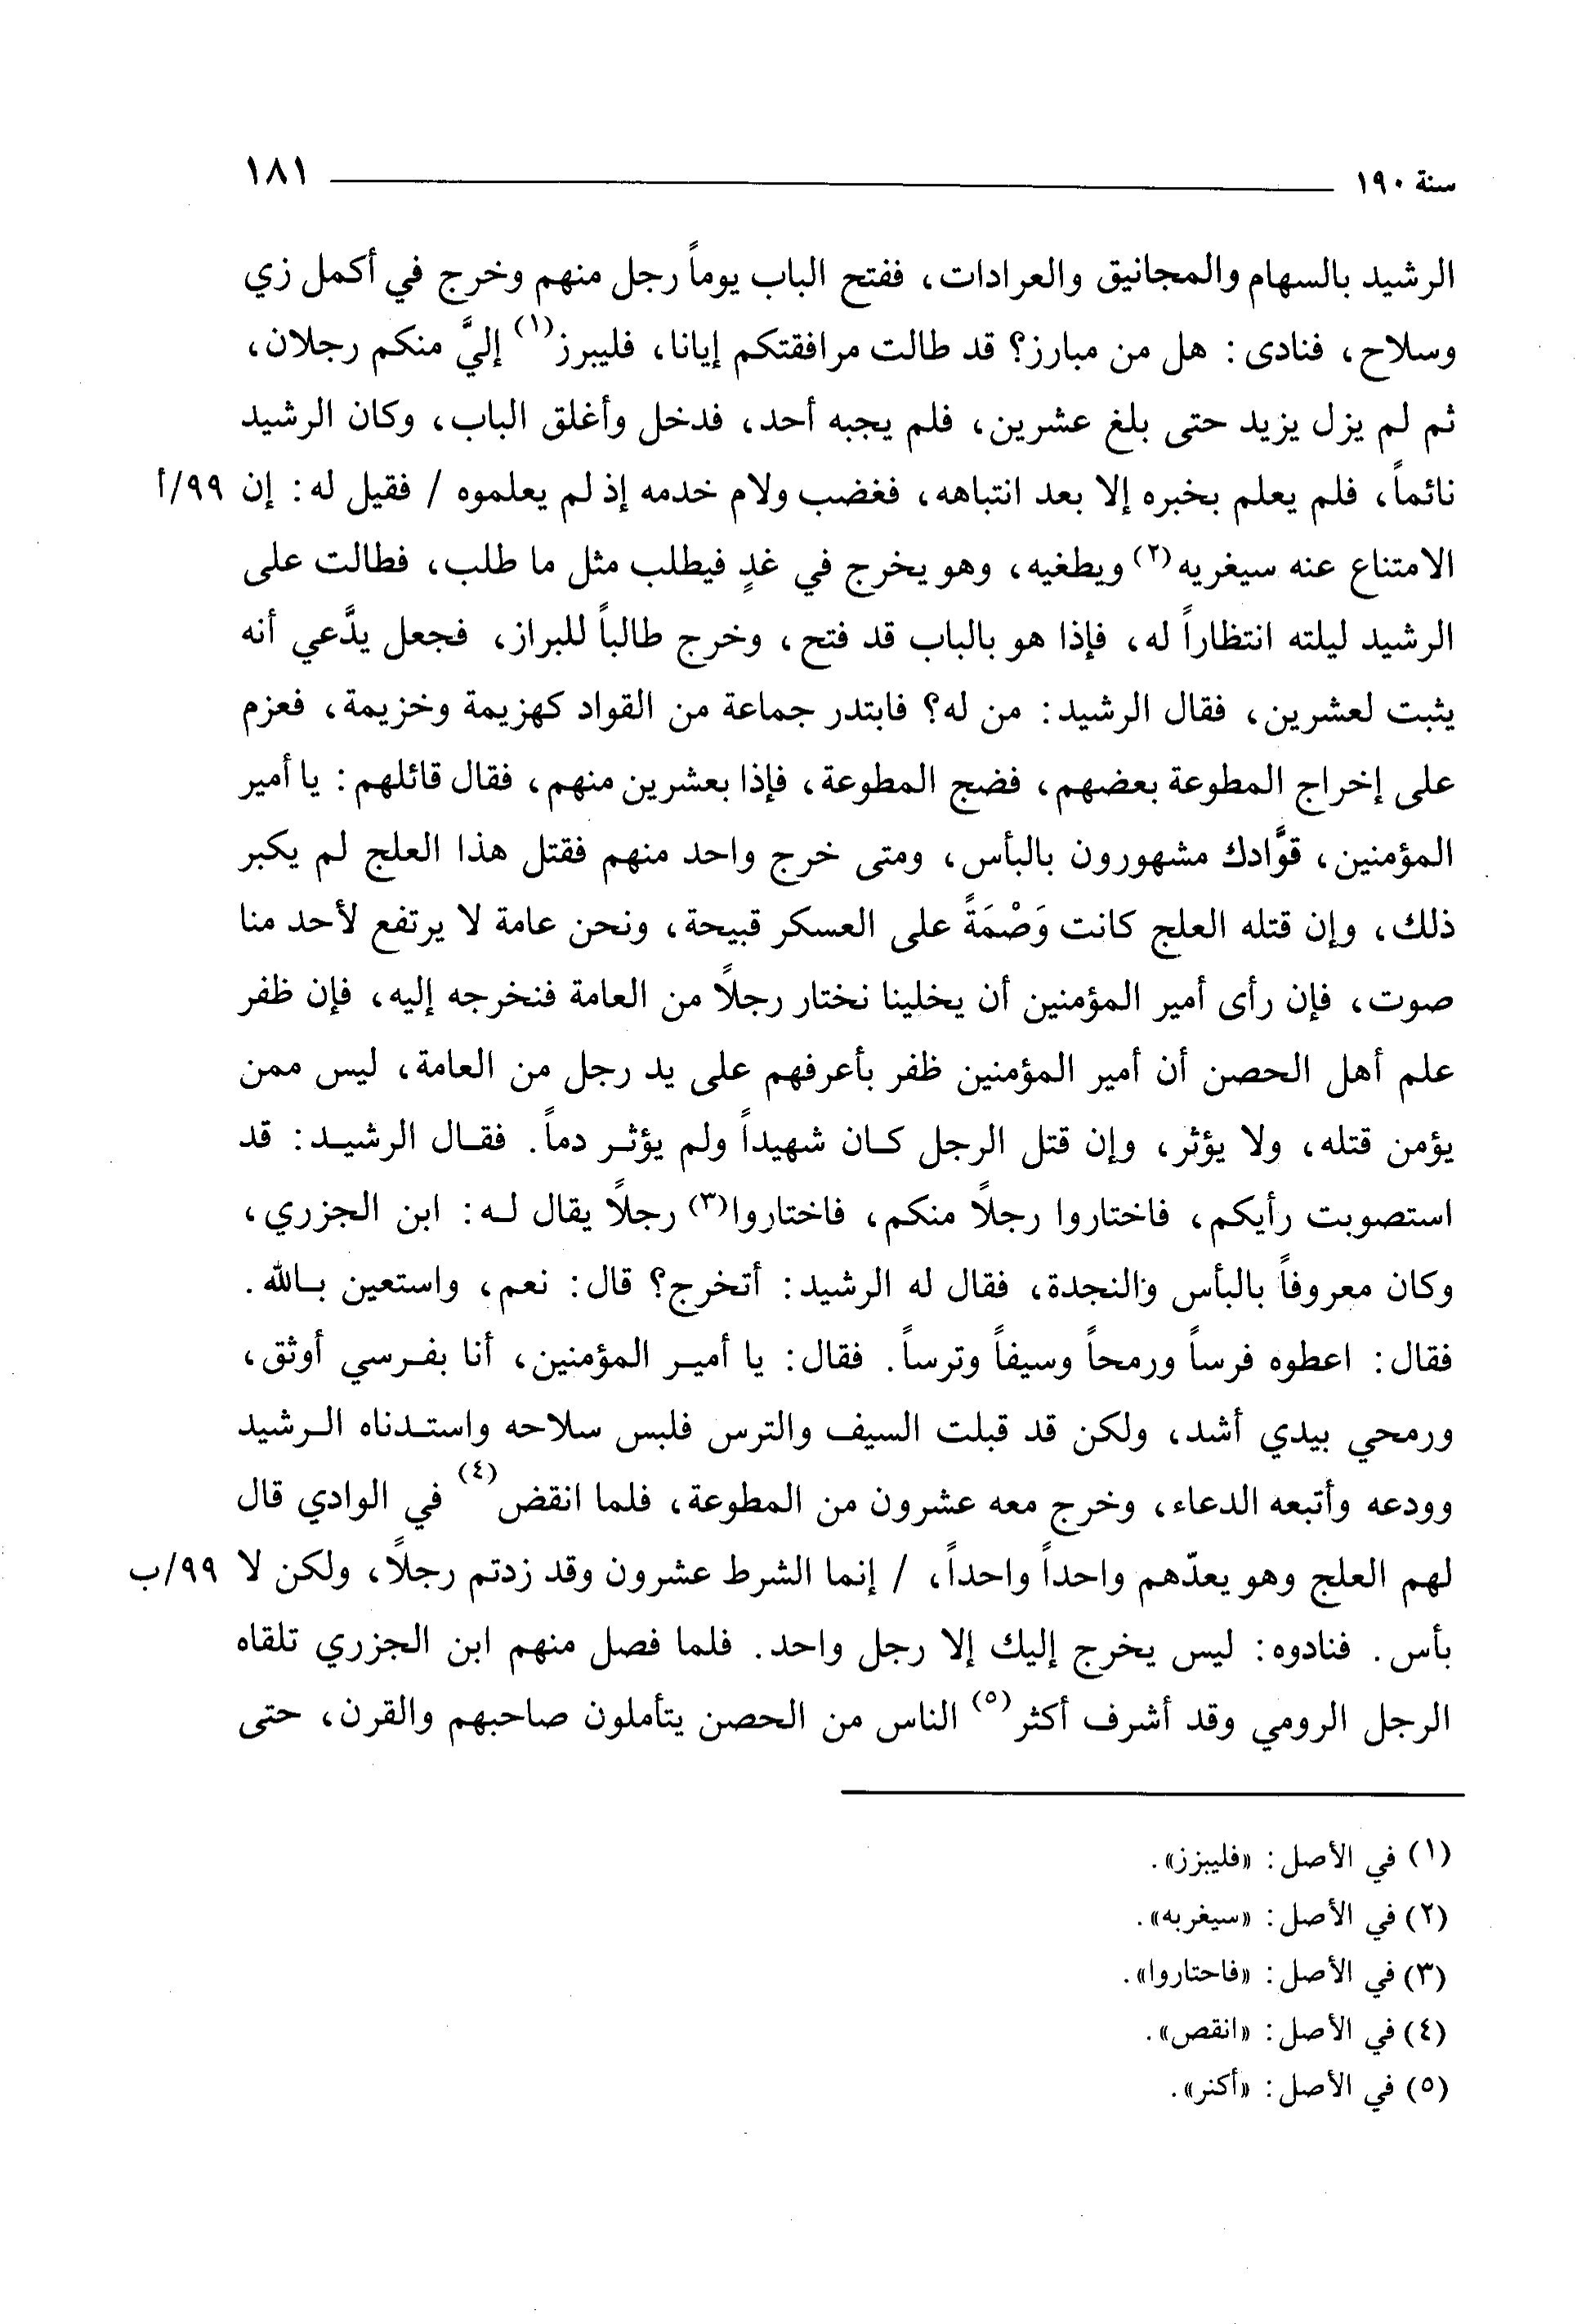 سنة ١٩٠ ١٨١
الرشيد بالسهام والمجانيق والعرادات، ففتح الباب يوماً رجل منهم وخرج في أكمل زي
وسلاح، فنادى: هل من مبارز؟ قد طالت مرافقتكم إيانا، فليبرز(١) إليَّ منكم رجلان،
ثم لم يزل يزيد حتى بلغ عشرين، فلم يجبه أحد، فدخل وأغلق الباب، وكان الرشيد
نائماً، فلم يعلم بخبره إلا بعد انتباهه، فغضب ولام خدمه إذ لم يعلموه / فقيل له: إن ٩٩/أ
الامتناع عنه سيغريه(٢) ويطغيه، وهو يخرج في غدٍ فيطلب مثل ما طلب، فطالت على
الرشيد ليلته انتظاراً له، فإذا هو بالباب قد فتح، وخرج طالباً للبراز، فجعل يدَّعي أنه
يثبت لعشرين، فقال الرشيد: من له؟ فابتدر جماعة من القواد كهزيمة وخزيمة، فعزم
على إخراج المطوعة بعضهم، فضج المطوعة، فإذا بعشرين منهم، فقال قائلهم: يا أمير
المؤمنين، قوَّادك مشهورون بالبأس، ومتى خرج واحد منهم فقتل هذا العلج لم يكبر
ذلك، وإن قتله العلج كانت وَصْمَةً على العسكر قبيحة، ونحن عامة لا يرتفع لأحد منا
صوت، فإن رأى أمير المؤمنين أن يخلينا نختار رجلاً من العامة فنخرجه إليه، فإن ظفر
علم أهل الحصن أن أمير المؤمنين ظفر بأعرفهم على يد رجل من العامة، ليس ممن
يؤمن قتله، ولا يؤثر، وإن قتل الرجل كان شهيداً ولم يؤثر دماً. فقال الرشيد: قد
استصوبت رأيكم، فاختاروا رجلاً منكم، فاختاروا(٣) رجلاً يقال له: ابن الجزري،
وكان معروفاً بالبأس والنجدة، فقال له الرشيد: أتخرج؟ قال: نعم، واستعين بالله.
فقال: اعطوه فرساً ورمحاً وسيفاً وترساً. فقال: يا أمير المؤمنين، أنا بفرسي أوثق،
ورمحي بيدي أشد، ولكن قد قبلت السيف والترس فلبس سلاحه واستدناه الرشيد
وودعه وأتبعه الدعاء، وخرج معه عشرون من المطوعة، فلما انقض(٤) في الوادي قال
لهم العلج وهو يعدّهم واحداً واحداً، / إنما الشرط عشرون وقد زدتم رجلاً، ولكن لا ٩٩/ب
بأس. فنادوه: ليس يخرج إليك إلا رجل واحد. فلما فصل منهم ابن الجزري تلقاه
الرجل الرومي وقد أشرف أكثر(٥) الناس من الحصن يتأملون صاحبهم والقرن، حتى
(١) في الأصل: «فليبزز».
(٢) في الأصل: «سيغربه».
(٣) في الأصل: «فاحتاروا».
(٤) في الأصل: «انقص».
(٥) في الأصل: «أكنر».